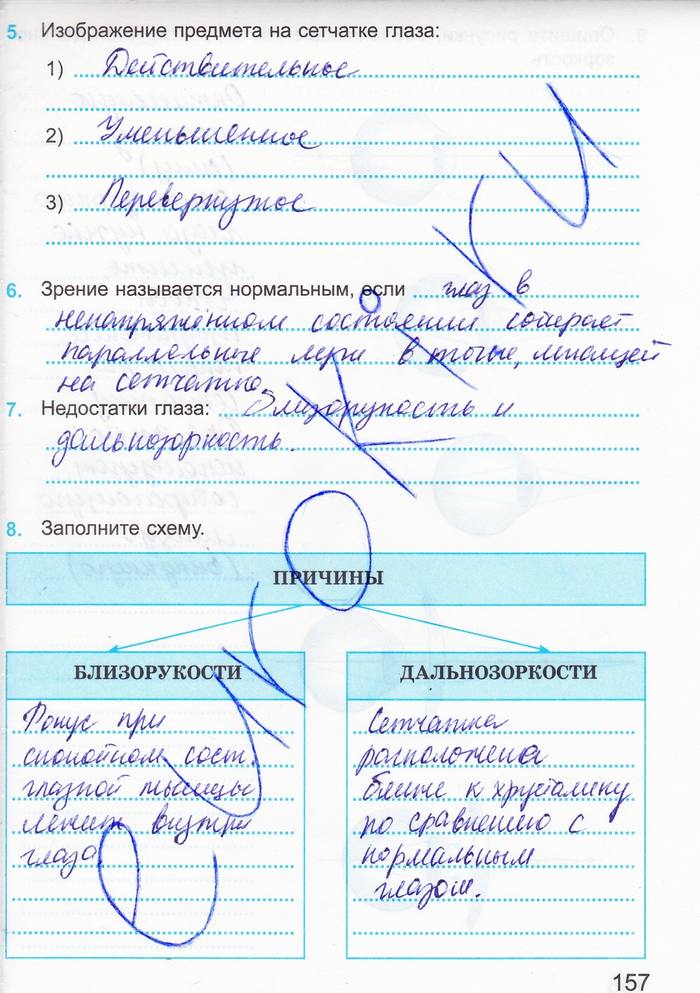 5. Изображение предмета на сетчатке глаза:
1) Действительное
2) Уменьшенное
3) Перевернутое
6. Зрение называется нормальным, если глаз в
ненапряжённом состоянии собирает
параллельные лучи в точке, лежащей
на сетчатке.
7. Недостатки глаза: Близорукость и
дальнозоркость.
8. Заполните схему.
ПРИЧИНЫ
БЛИЗОРУКОСТИ
ДАЛЬНОЗОРКОСТИ
Фокус при
спокойном сост.
глазной мышцы
лежит внутри
глаза
Сетчатка
расположена
ближе к хрусталику
по сравнению с
нормальным
глазом.
157